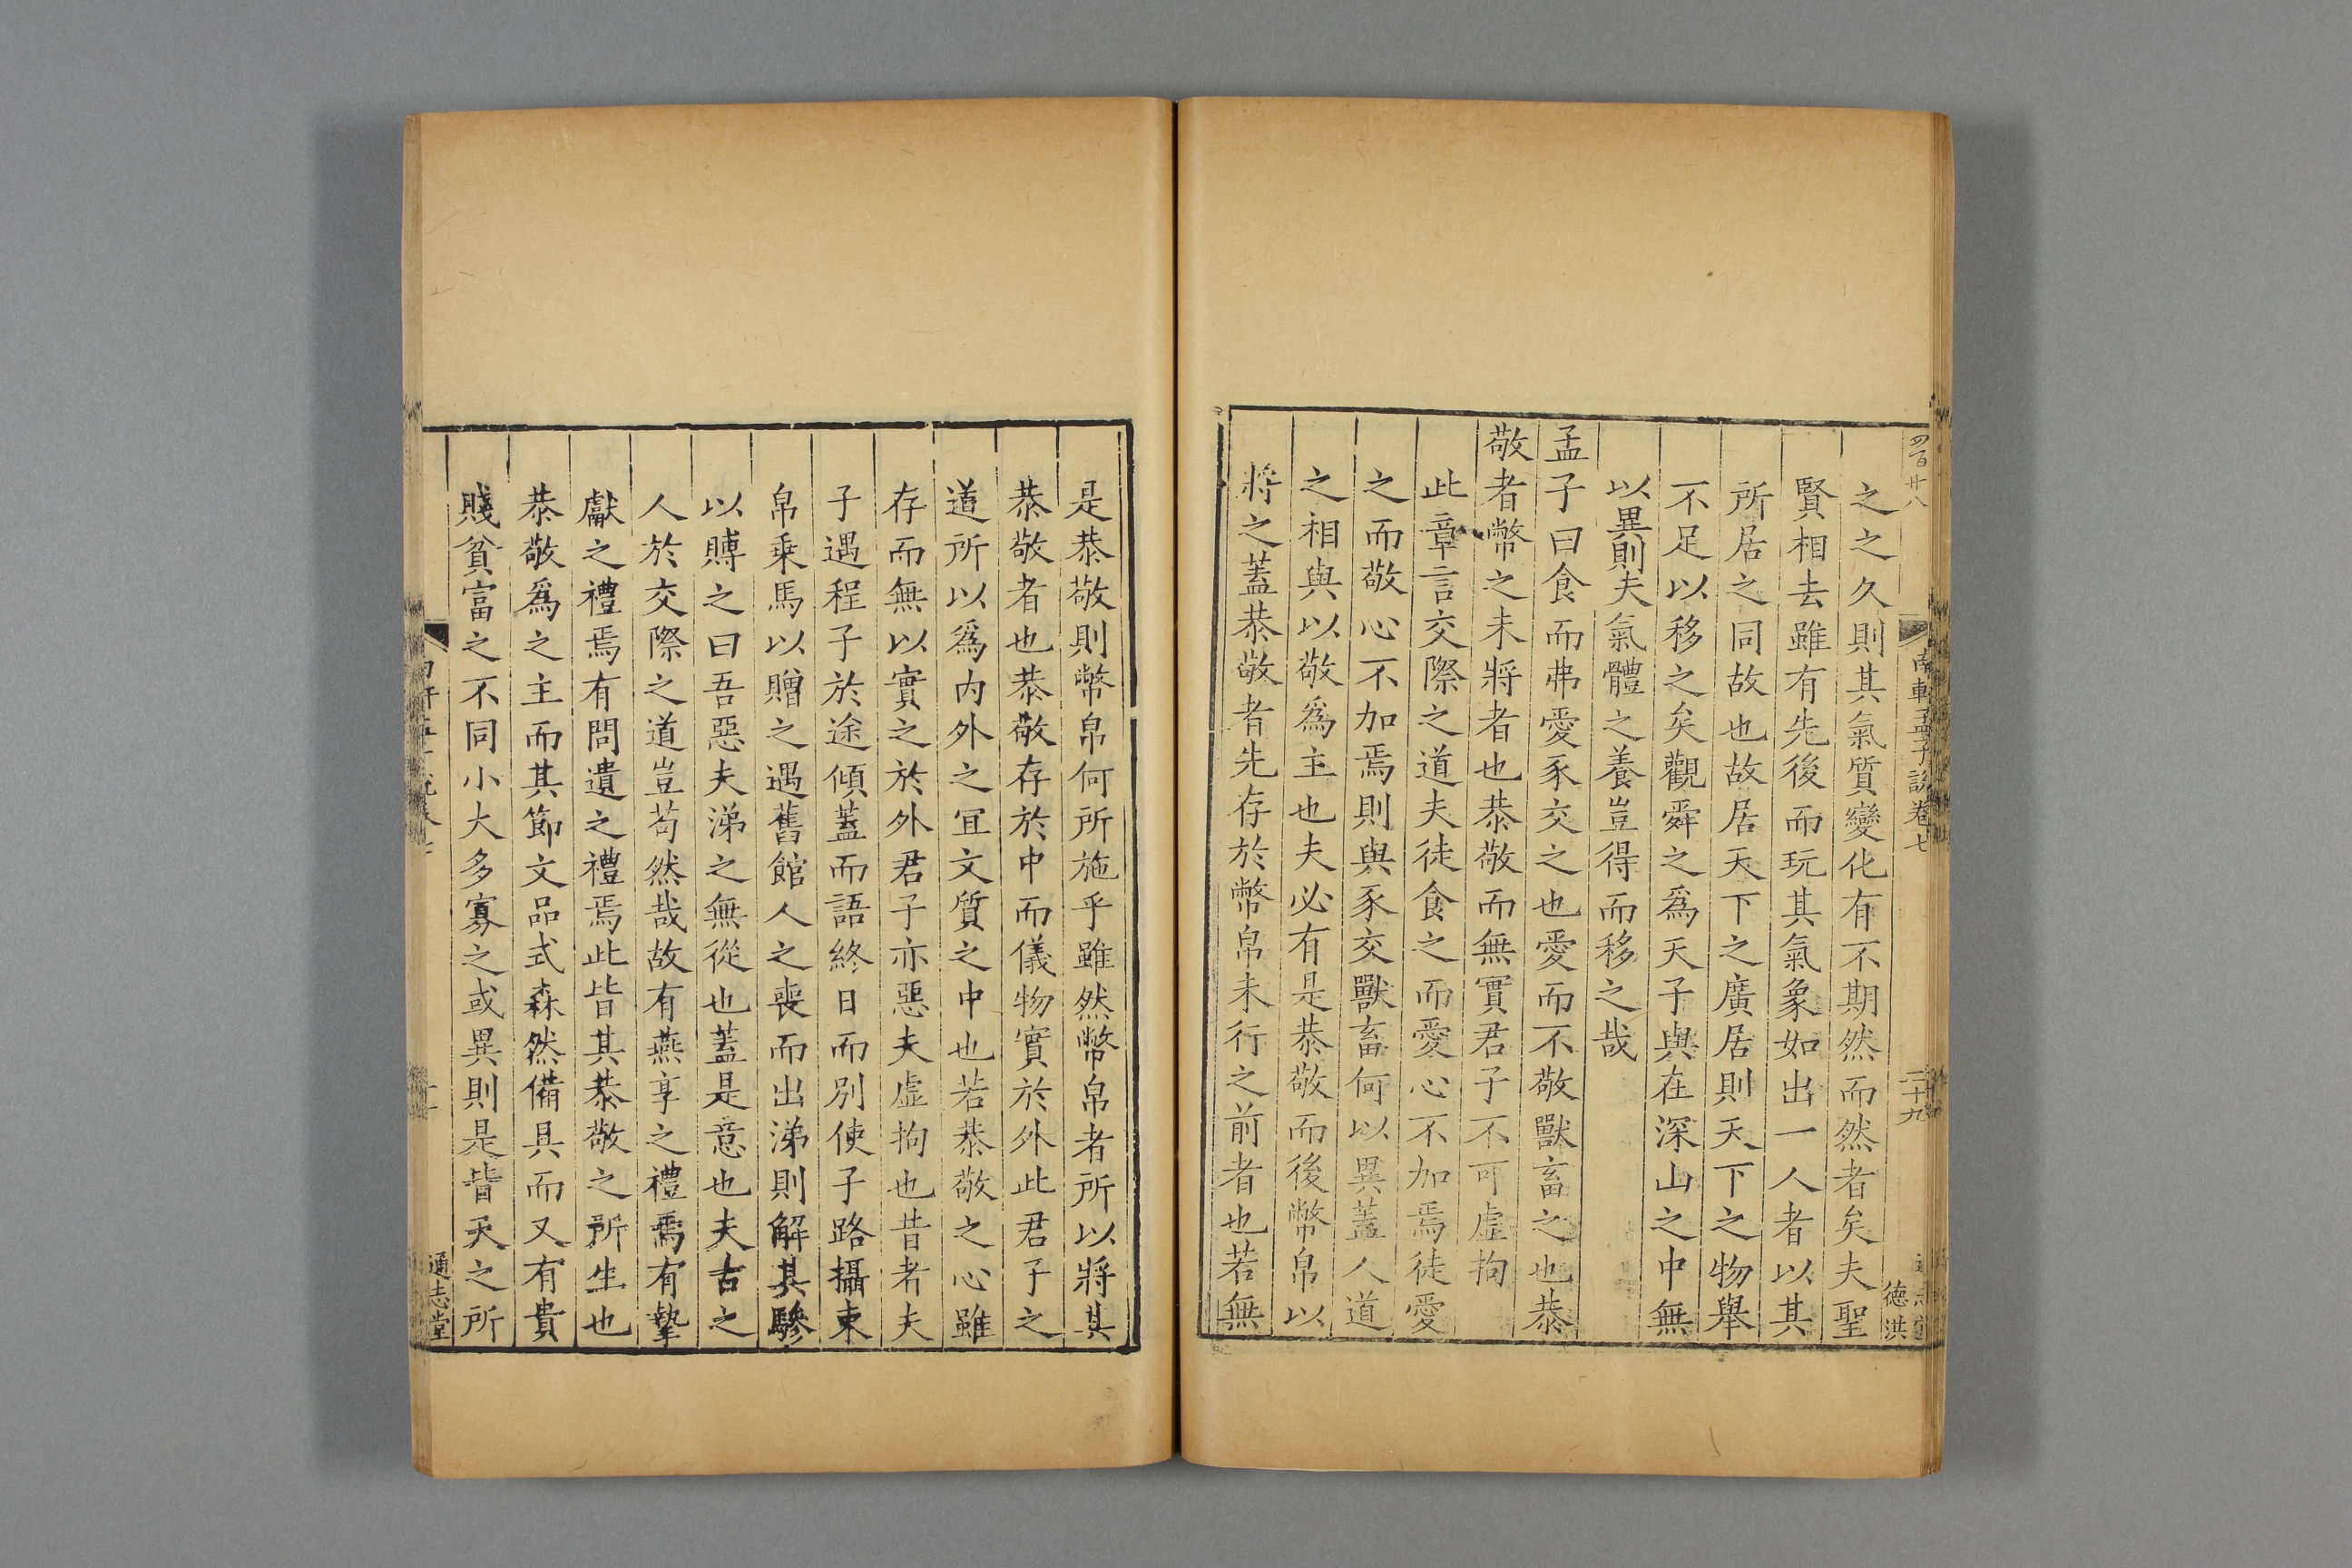 四百廿八
南軒孟子說卷七
二十九
德洪
之之久則其氣質變化有不期然而然者矣夫聖
賢相去雖有先後而玩其氣象如出一人者以其
所居之同故也故居天下之廣居則天下之物舉
不足以移之矣觀舜之爲天子與在深山之中無
以異則夫氣體之養豈得而移之哉
孟子曰食而弗愛豕交之也愛而不敬獸畜之也恭
敬者幣之未將者也恭敬而無實君子不可虛拘
此章言交際之道夫徒食之而愛心不加焉徒愛
之而敬心不加焉則與豕交獸畜何以異蓋人道
之相與以敬爲主也夫必有是恭敬而後幣帛以
將之蓋恭敬者先存於幣帛未行之前者也若無
是恭敬則幣帛何所施乎雖然幣帛者所以將其
恭敬者也恭敬存於中而儀物實於外此君子之
道所以爲內外之宜文質之中也若恭敬之心雖
存而無以實之於外君子亦惡夫虛拘也昔者夫
子遇程子於途傾蓋而語終日而別使子路攝束
帛乘馬以贈之遇舊館人之喪而出涕則解其驂
以賻之曰吾惡夫涕之無從也蓋是意也夫古之
人於交際之道豈苟然哉故有燕享之禮焉有摯
獻之禮焉有問遺之禮焉此皆其恭敬之所生也
恭敬爲之主而其節文品式森然備具而又有貴
賤貧富之不同小大多寡之或異則是皆天之所
通志堂